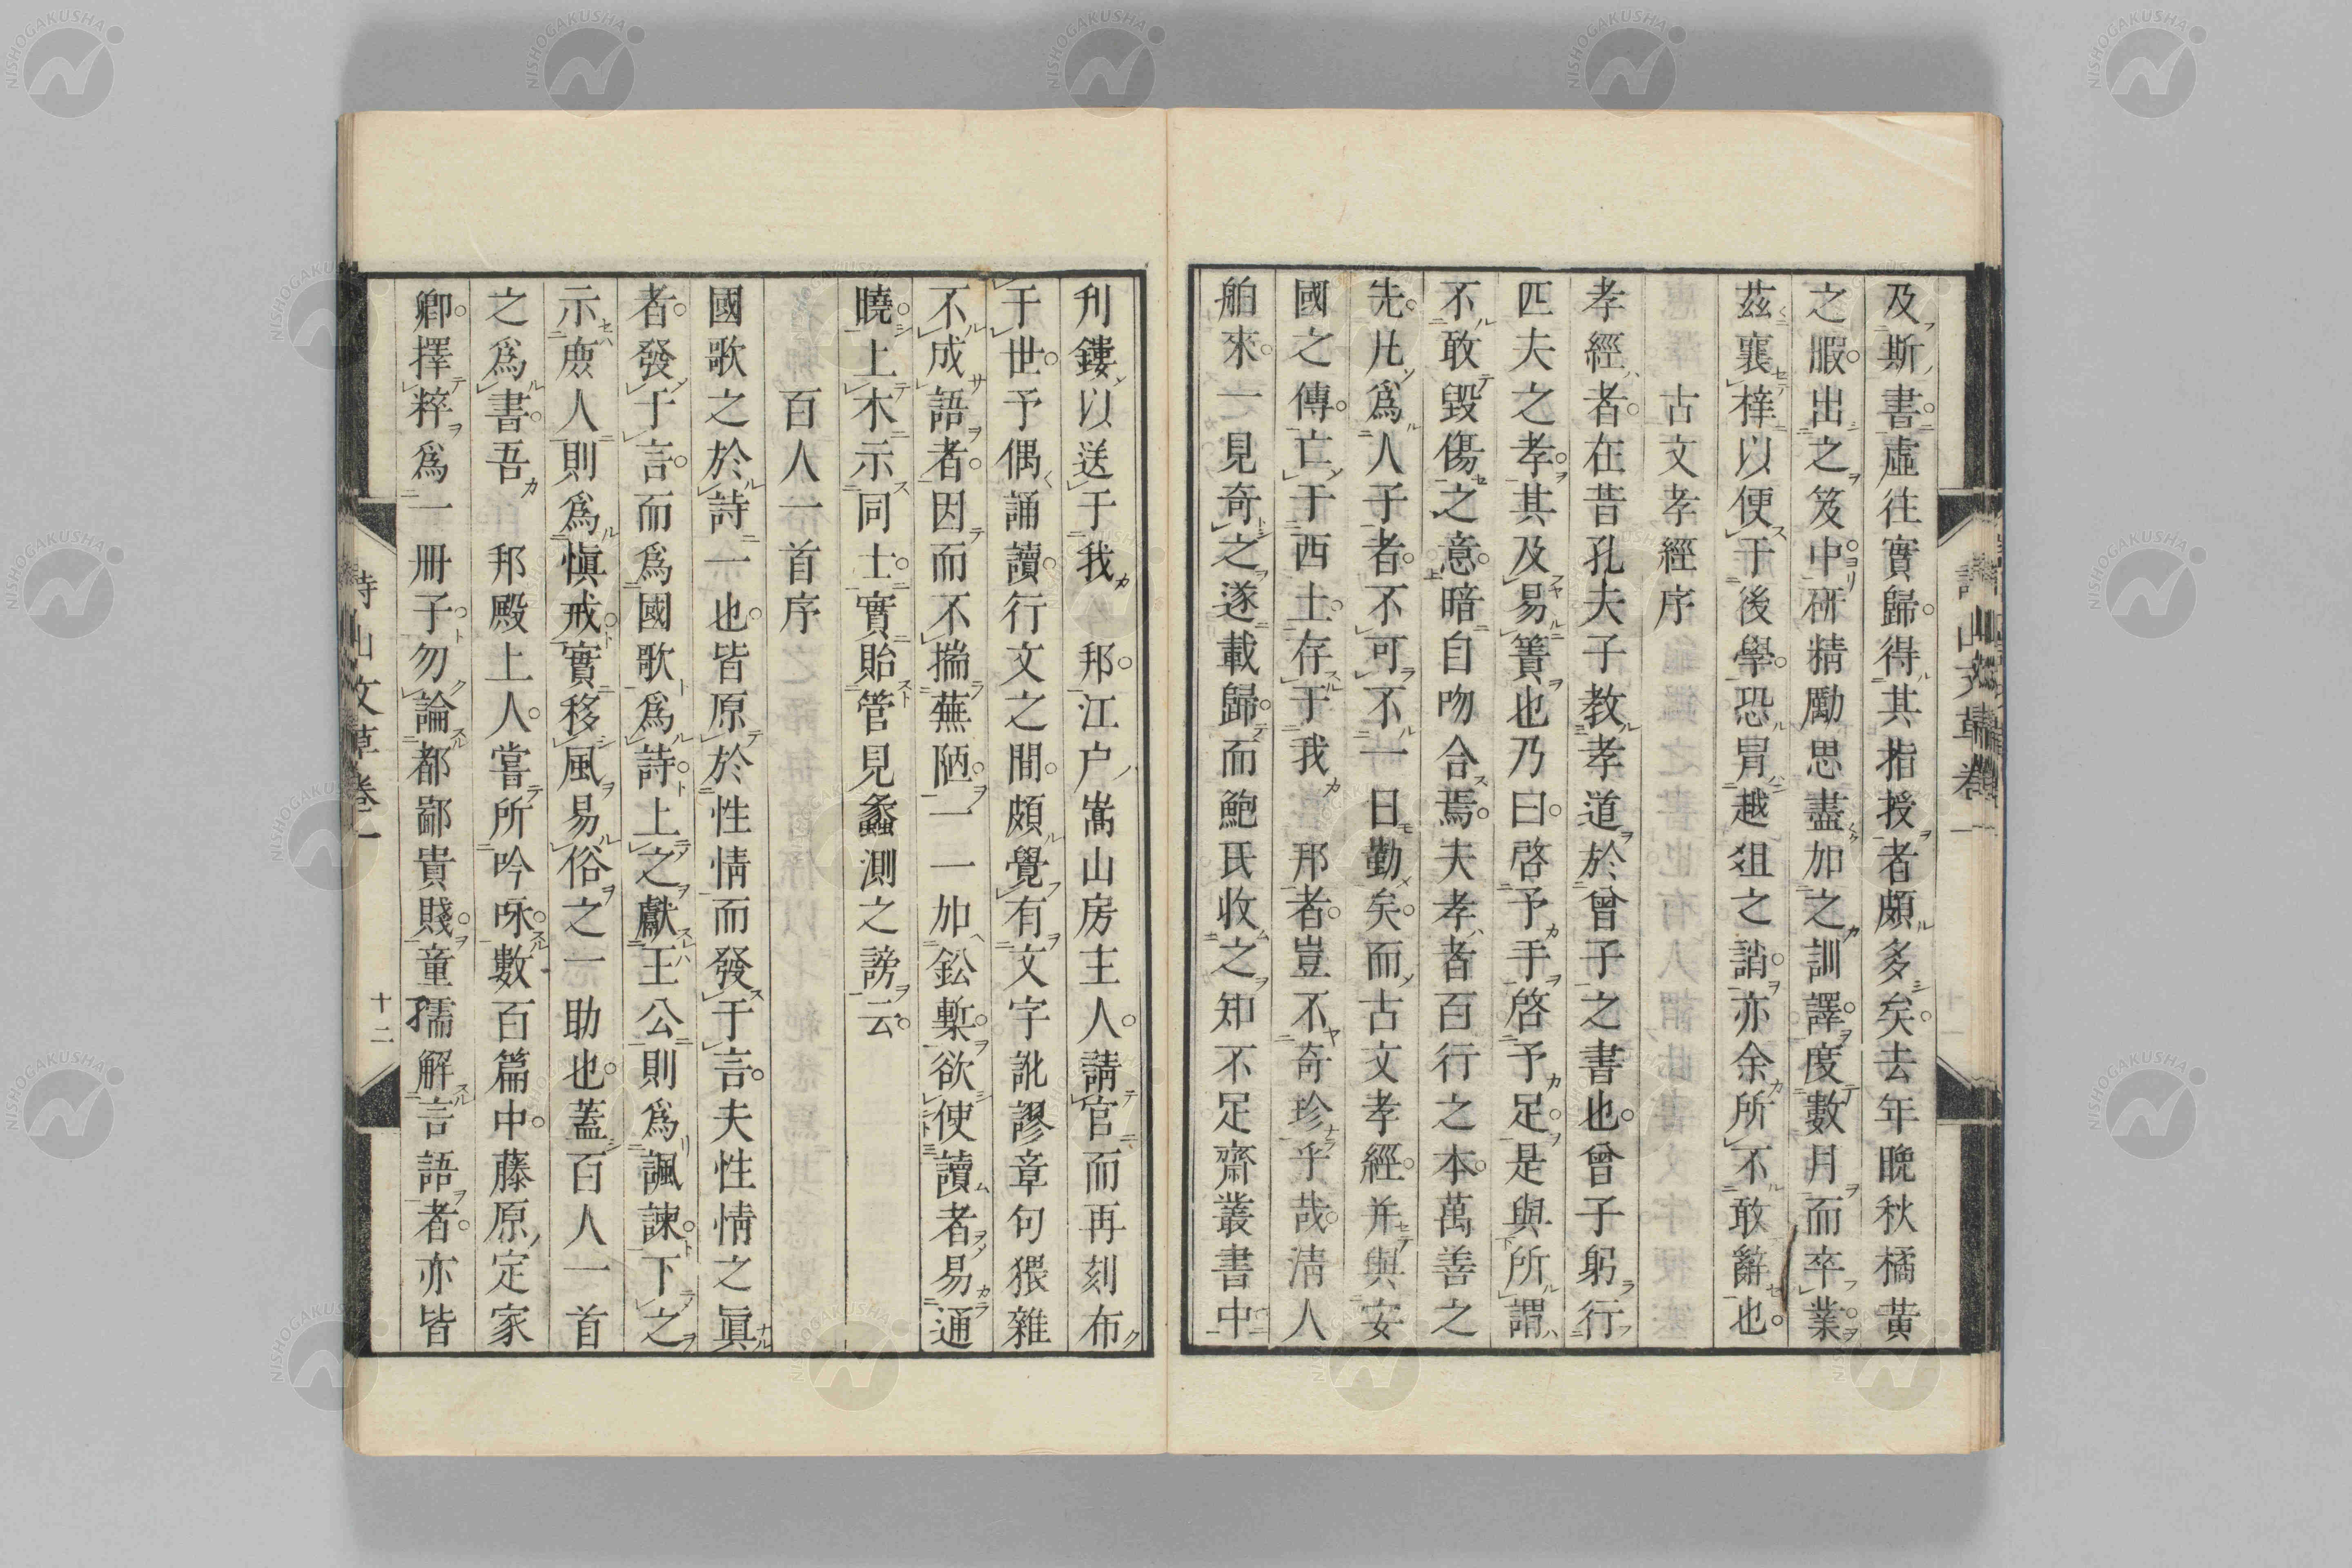 及斯書。虛往實歸。得其指授者頗多矣。去年晚秋橘黃
之暇。出之笈中。研精勵思。盡加之訓譯。度數月而卒業。
茲襄梓以便于後學。恐冐越俎之誚。亦余所不敢辭也。
古文孝經序
孝經者。在昔孔夫子教孝道於曾子之書也。曾子躬行
四夫之孝。其及易簀也乃曰。啓予手啓予足。是與所謂
不敢毀傷之意。暗自吻合焉。夫孝者百行之本。萬善之
先。凡爲人子者。不可不一日勤矣。而古文孝經。并與安
國之傳。亡于西土。存于我 邦者。豈不奇珍乎哉。淸人
舶來。一見奇之。遂載歸。而鮑氏收之知不足齋叢書中
刋鏤以送于我 邦。江户嵩山房主人。請官而再刻布
于世。予偶誦讀。行文之間。頗覺有文字訛謬章句猥雜
不成語者。因而不揣蕪陋。一一加鈆槧。欲使讀者易通
曉。上木示同士。實貽管見蠡測之謗云。
百人一首序
國歌之於詩一也。皆原於性情而發于言。夫性情之眞
者。發于言。而爲國歌爲詩。上之獻王公則爲諷諫。下之
示庶人則爲愼戒。實移風易俗之一助也。蓋百人一首
之爲書。吾 邦殿上人。嘗所吟咏。數百篇中。藤原定家
卿。擇粹爲一冊子。勿論都鄙貴賤。童孺解言語者。亦皆
詩山文草卷一
十二